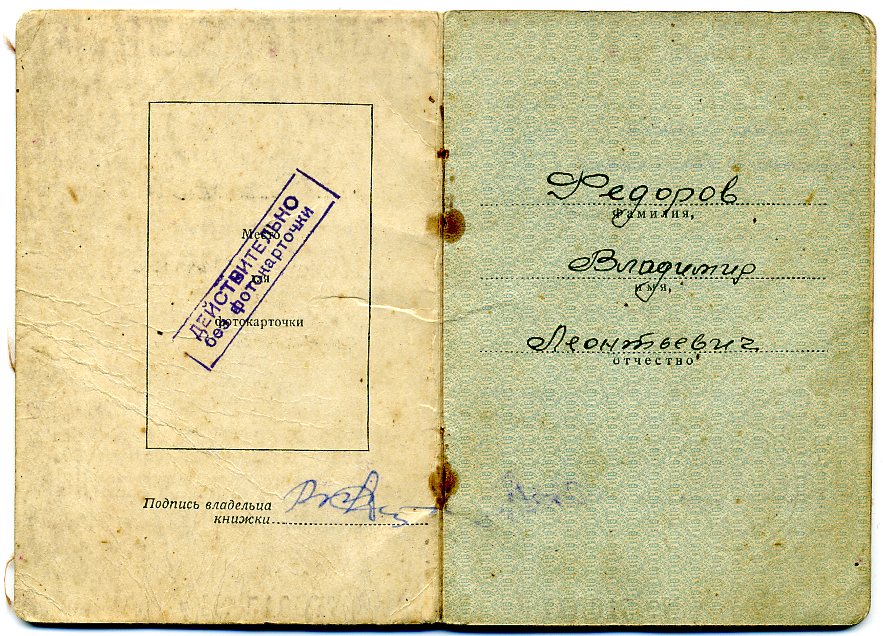 Место
для
фотокарточки
ДЕЙСТВИТЕЛЬНО
без фотокарточки
Подпись владельца
книжки
Федоров
фамилия,
Владимир
имя,
Леонтьевич
отчество